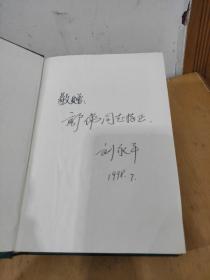 敬赠:
伟同志指正.
刘永平
1998.7.